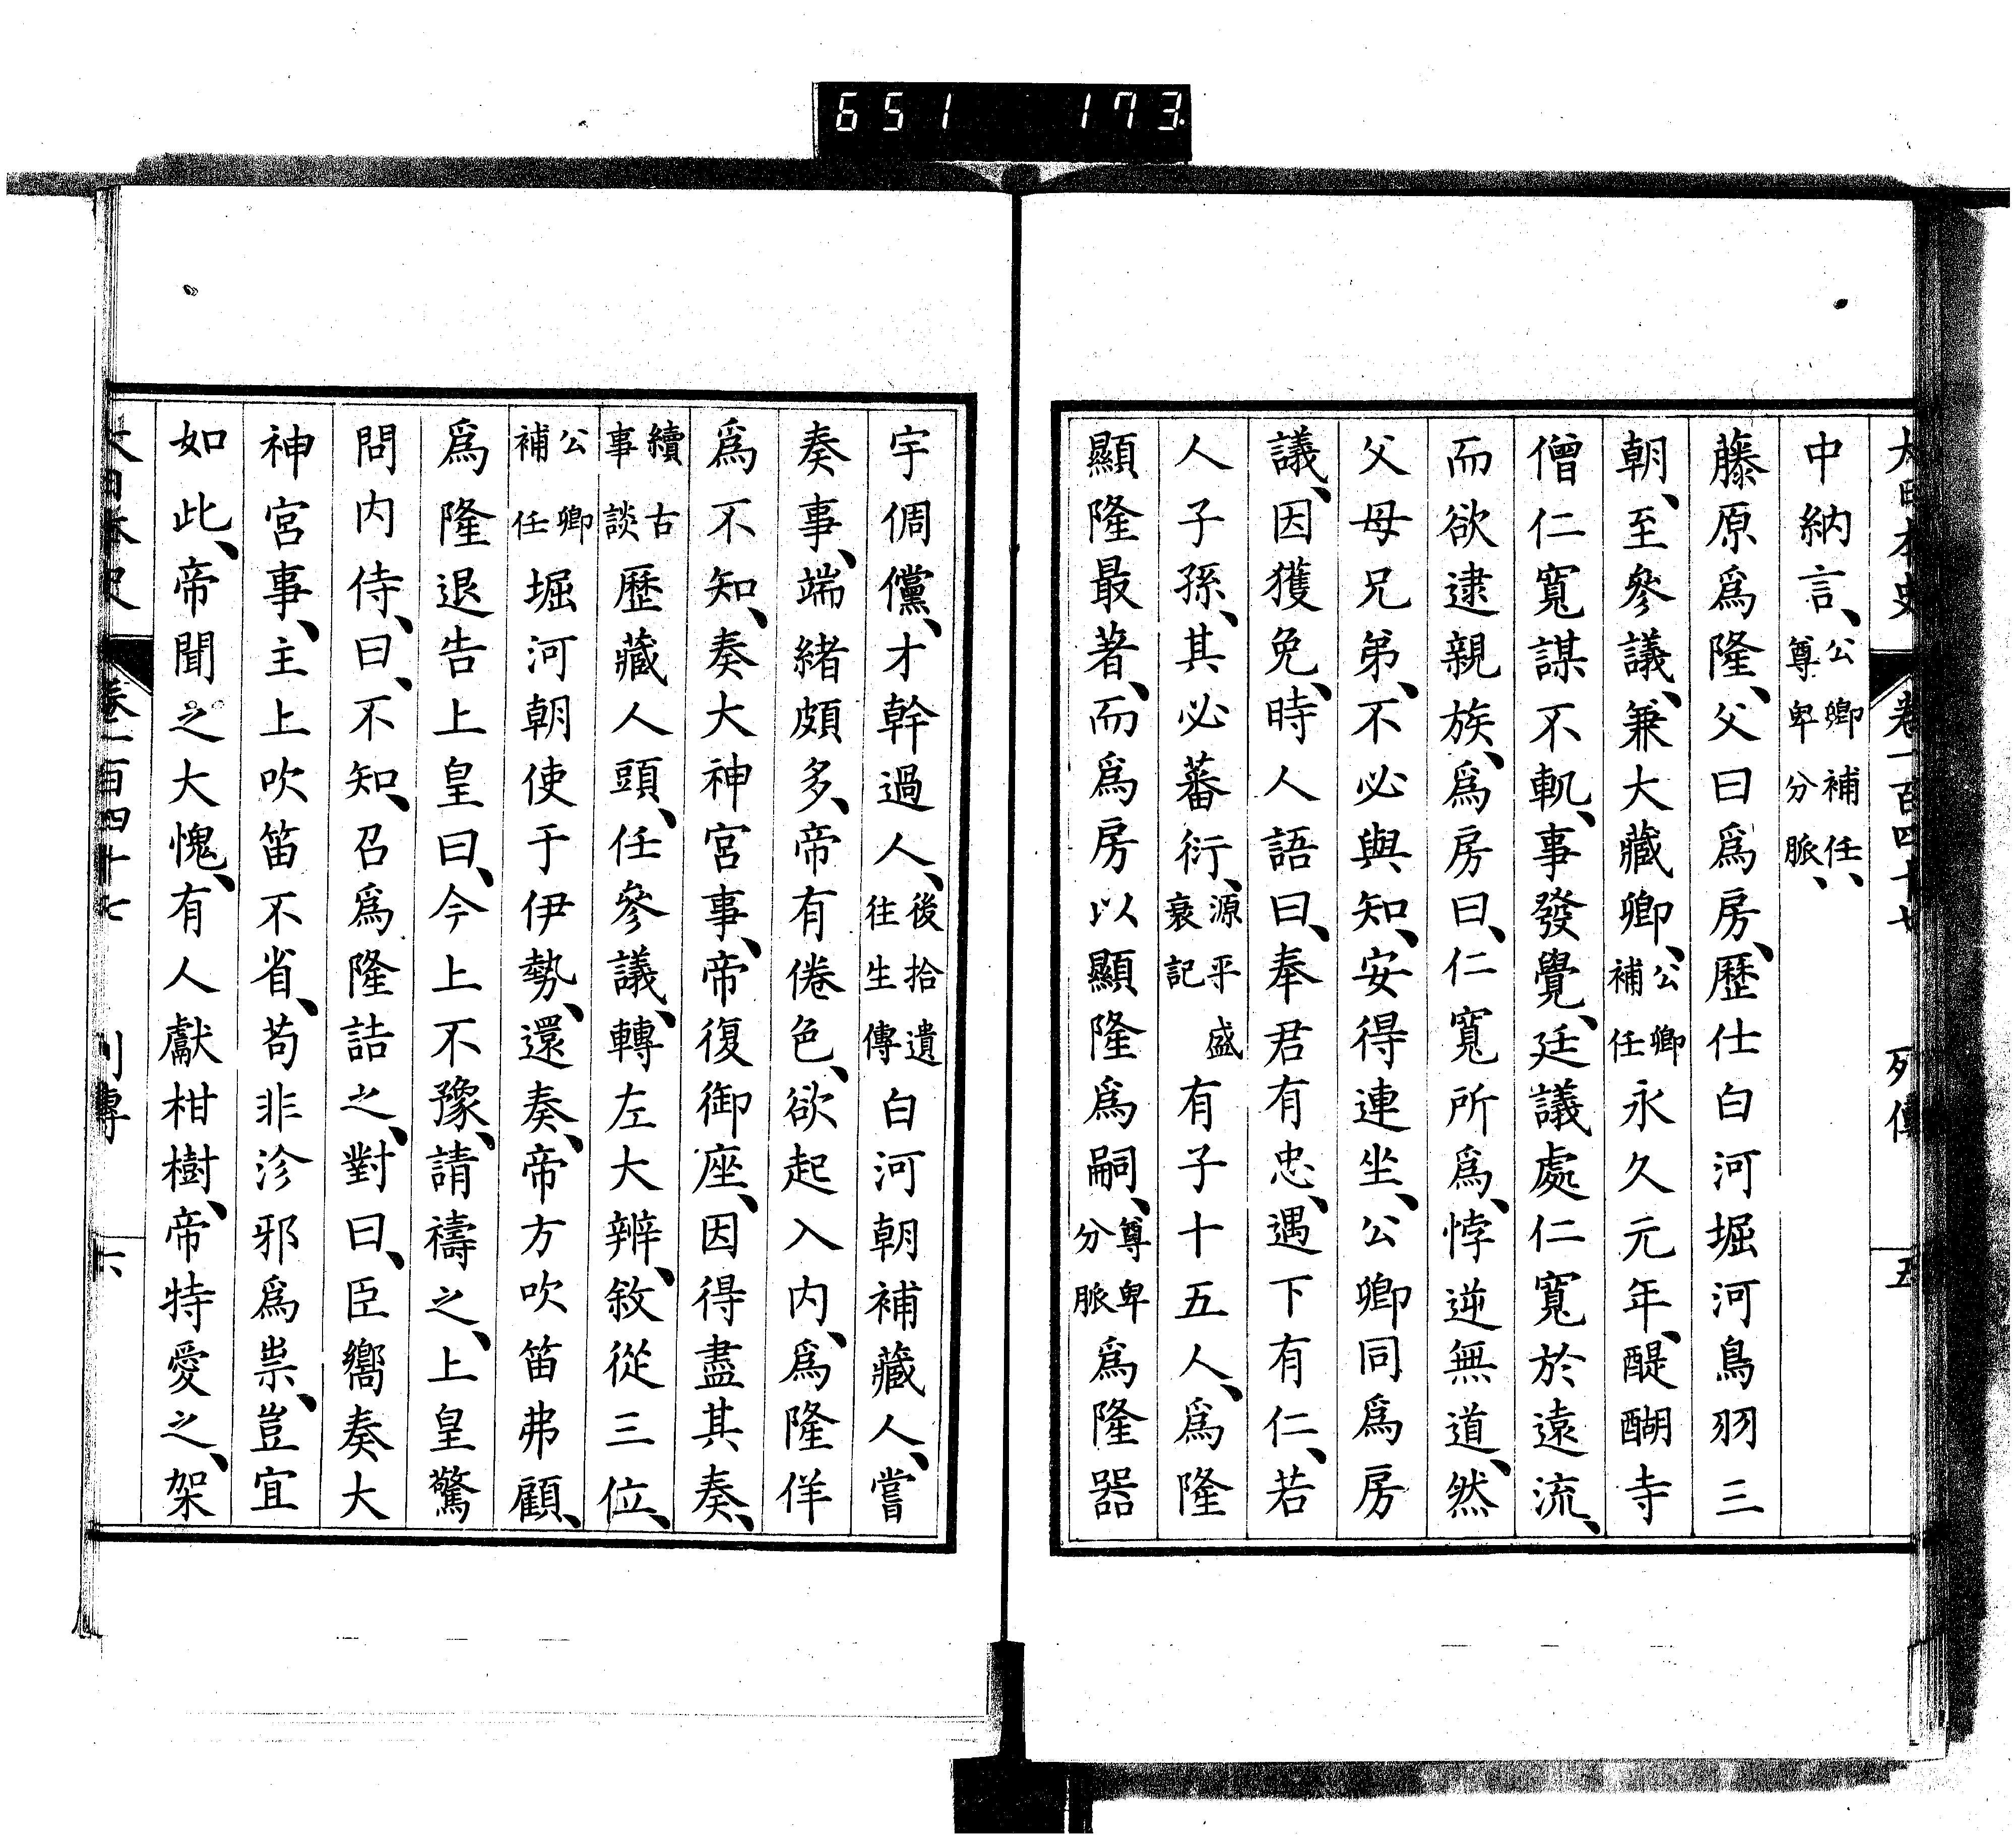 651 173
大日本史 卷一百四十七 列傳 五
中納言、公卿補任、尊卑分脈、
藤原爲隆、父曰爲房、歷仕白河堀河鳥羽三
朝、至參議、兼大藏卿、公卿補任永久元年、醍醐寺
僧仁寬謀不軌、事發覺、廷議處仁寬於遠流、
而欲逮親族、爲房曰、仁寬所爲、悖逆無道、然
父母兄弟、不必與知、安得連坐、公卿同爲房
議、因獲免、時人語曰、奉君有忠、遇下有仁、若
人子孫、其必蕃衍、源平盛衰記有子十五人、爲隆
顯隆最著、而爲房以顯隆爲嗣、尊卑分脈爲隆器
宇倜儻、才幹過人、後拾遺往生傳白河朝補藏人、嘗
奏事、端緒頗多、帝有倦色、欲起入內、爲隆佯
爲不知、奏大神宮事、帝復御座、因得盡其奏、
續古事談歷藏人頭、任參議、轉左大辨、敘從三位、
公卿補任堀河朝使于伊勢、還奏、帝方吹笛弗顧、
爲隆退告上皇曰、今上不豫、請禱之、上皇驚
問內侍、曰、不知、召爲隆詰之、對曰、臣嚮奏大
神宮事、主上吹笛不省、苟非沴邪爲祟、豈宜
如此、帝聞之大愧、有人獻柑樹、帝特愛之、架
大日本史 卷一百四十七 列傳 六